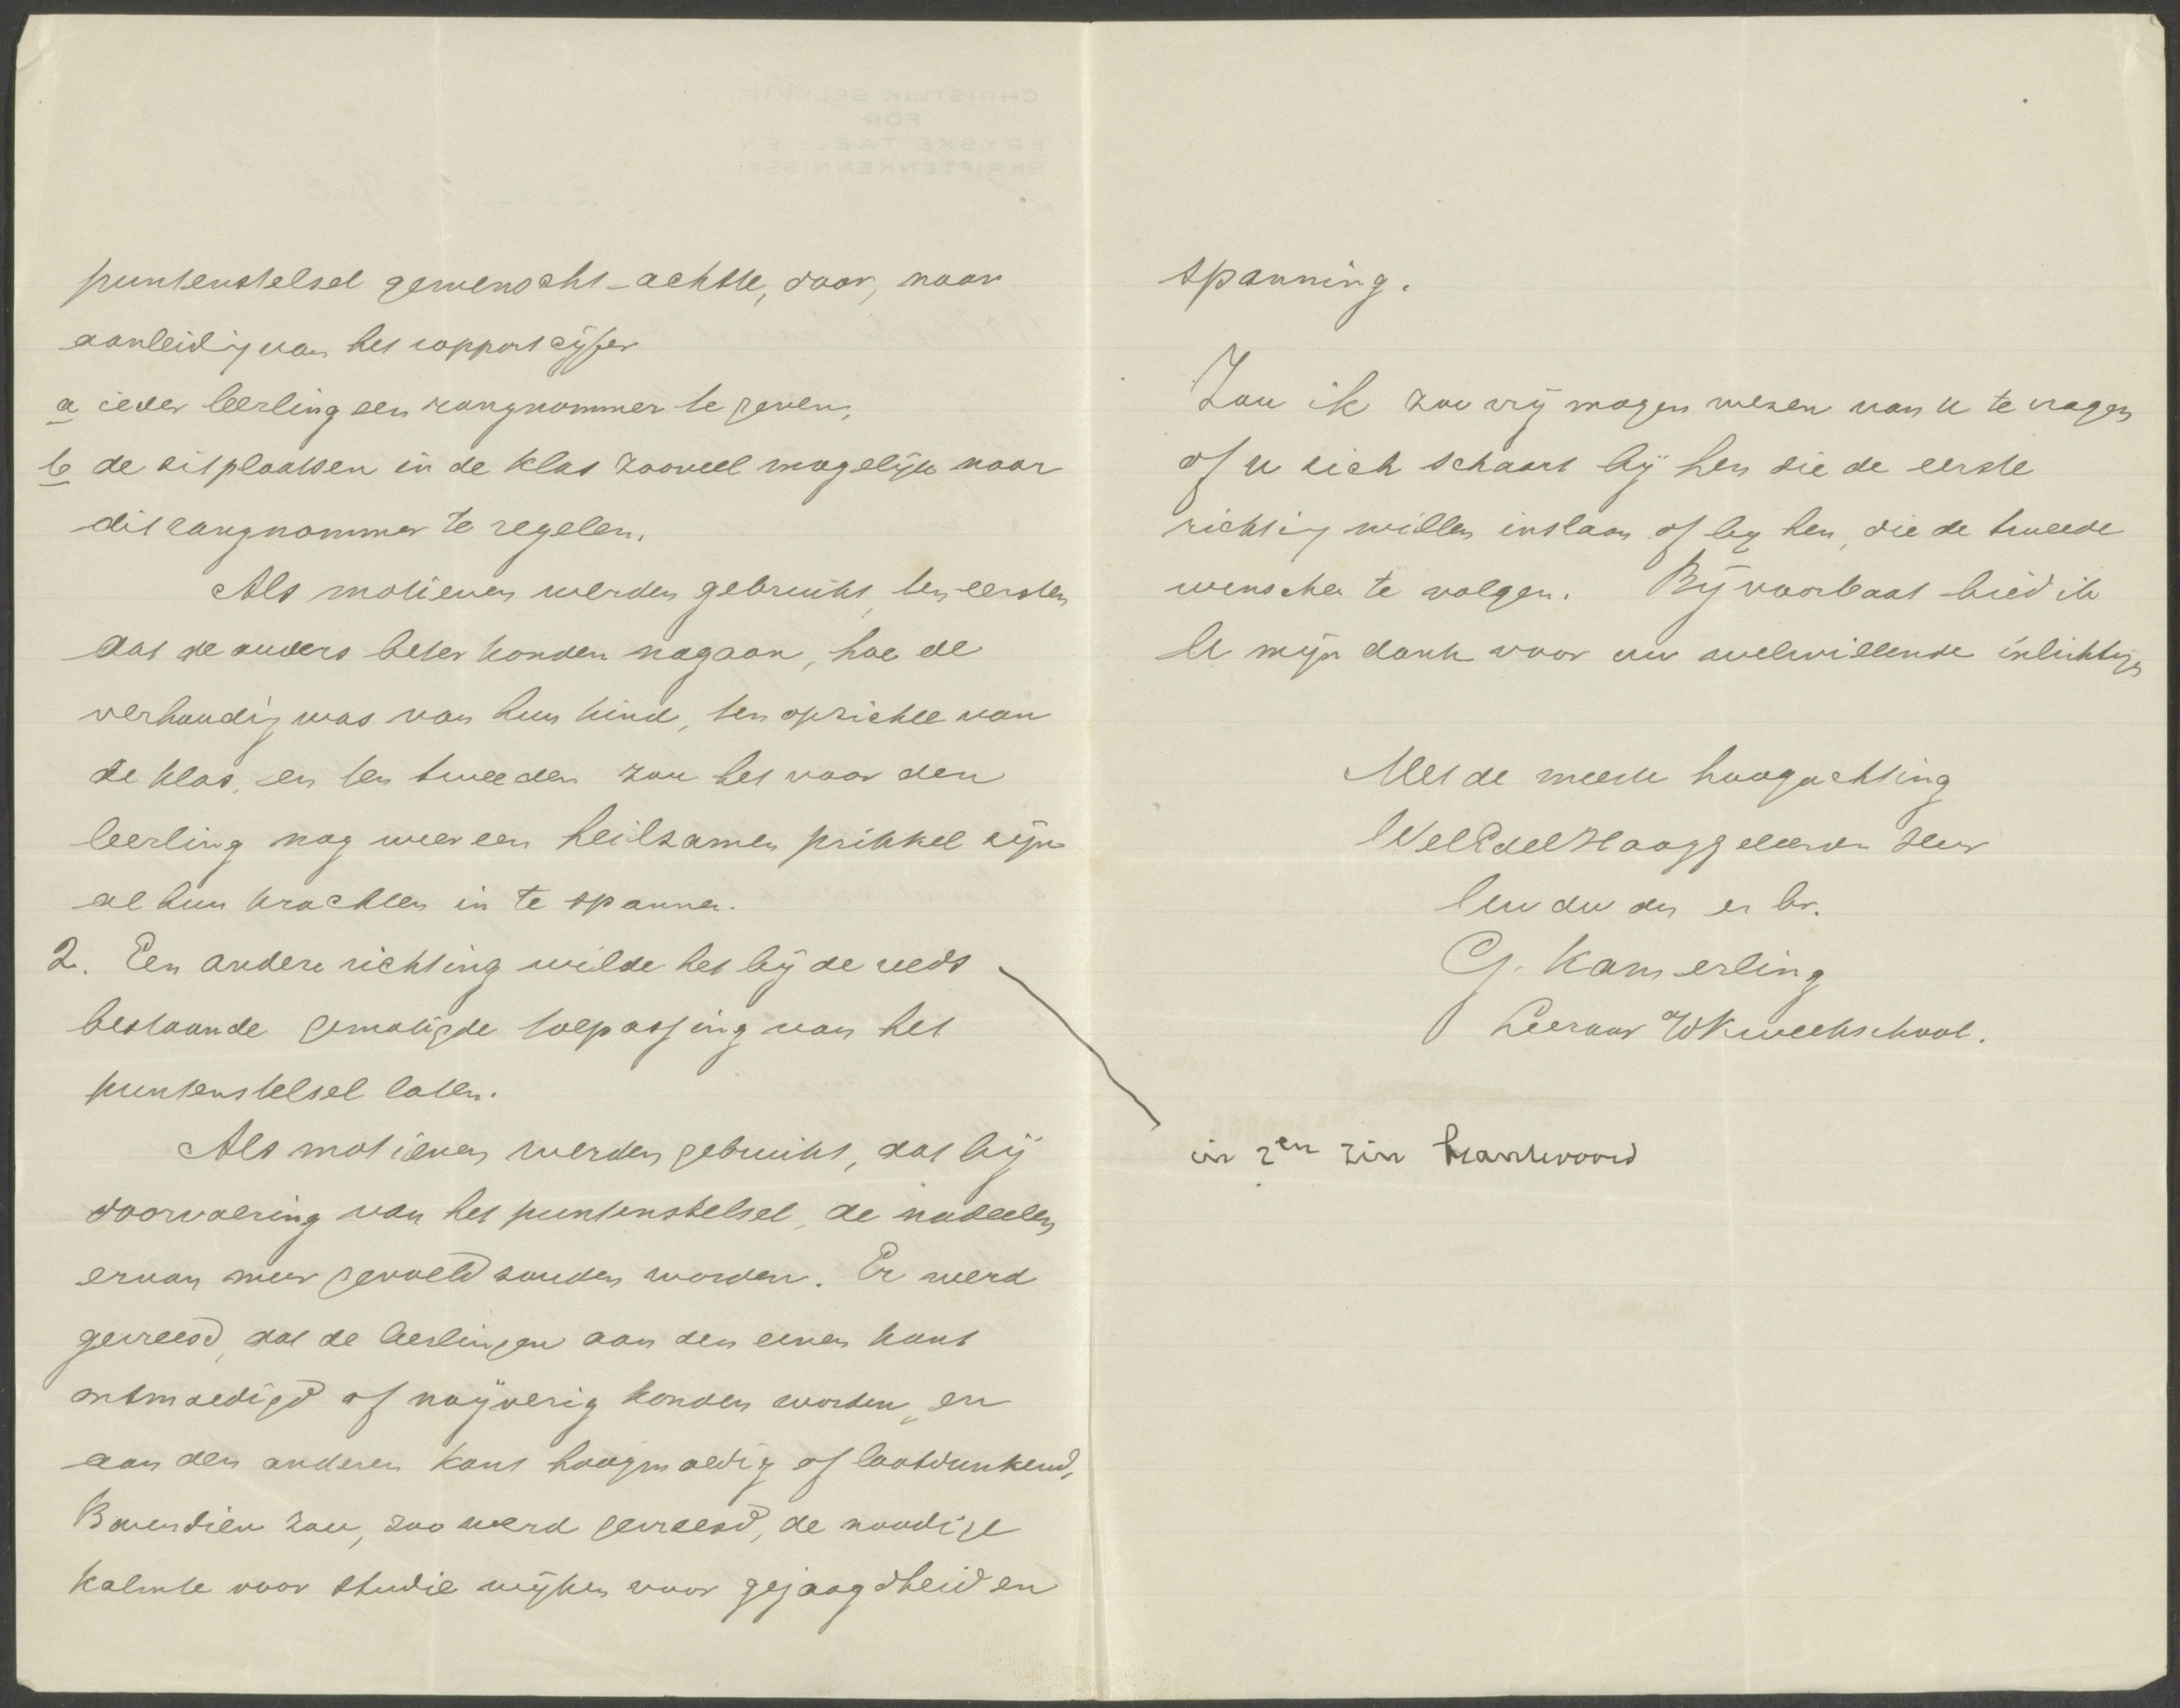 puntenstelsel gewenscht achtte, door, naar
aanleiding van het rapportcijfer
a ieder leerling een rangnommer te geven,
b de zitplaatsen in de klas zooveel mogelijk naar
dit rangnommer te regelen.
Als motieven werden gebruikt, ten eersten
dat de ouders beter konden nagaan, hoe de
verhouding was van hun kind, ten opzichte van
de klas, en ten tweeden zou het voor den
leerling nog weer een heilzamen prikkel zijn
al hun krachten in te spannen.
2. Een andere richting wilde het bij de reeds
bestaande gematigde toepassing van het
puntenstelsel laten.
Als motieven werden gebruikt, dat bij
doorvoering van het puntenstelsel, de nadeelen
ervan meer gevoeld zouden worden. Er werd
gevreesd, dat de leerlingen aan den eenen kant
ontmoedigd of naijverig konden worden, en
aan den anderen kant hoogmoedig of laatdunkend,
Bovendien zou, zoo werd gevreesd, de noodige
kalmte voor studie wijken voor gejaagdheid en
spanning.
Zou ik zoo vrij mogen wezen van u te vragen
of u zich schaart bij hen die de eerste
richting willen inslaan of bij hen, die de tweede
wenschen te volgen. Bij voorbaat bied ik
U mijn dank voor uw welwillende inlichtingen
Met de meeste hoogachting
WelEdelHooggeleerden Heer
Uw dw dn en br.
G. Kamerling
Leeraar Kweekschool.
in 2en zin beantwoord